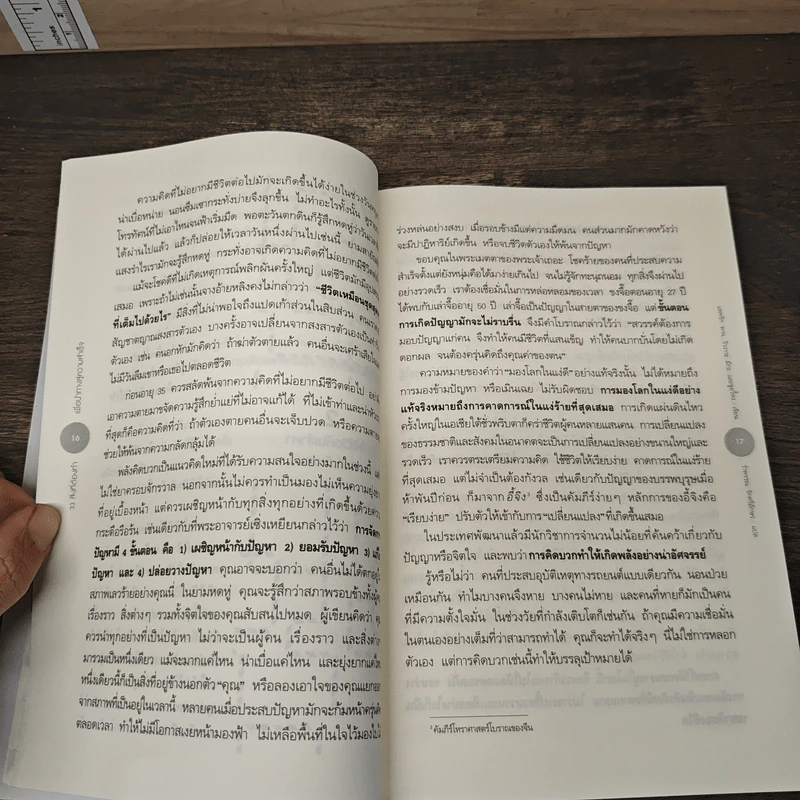 ความคิดที่ไม่อยากมีชีวิตต่อไปมักจะเกิดขึ้นได้ง่ายในช่วงวัน
น่าเบื่อหน่าย นอนซึมเซากระทั่งบ่ายจึงลุกขึ้น ไม่ทำอะไรทั้งนั้น
โทรทัศน์ที่ไม่เอาไหนจนฟ้าเริ่มมืด พอตะวันตกดินก็รู้สึกหดหู่ว่าวันเวลา
ได้ผ่านไปแล้ว แล้วก็ปล่อยให้เวลาวันหนึ่งผ่านไปเช่นนี้
แสงรำไรเรามักจะรู้สึกหดหู่ กระทั่งอาจเกิดความคิดที่ไม่อยากมีชีวิต
แม้จะโชคดีที่ไม่เกิดเหตุการณ์พลิกผันครั้งใหญ่ แต่ชีวิตมักมี
เสมอ เพราะถ้าไม่เช่นนั้นจางอ้ายหลิงคงไม่กล่าวว่า "ชีวิตเหมือน
ที่เต็มไปด้วยไร" มีสิ่งที่ไม่น่าพอใจถึงแปดเก้าส่วนในสิบส่วน
สัญชาตญาณสงสารตัวเอง บางครั้งอาจเปลี่ยนจากสงสารตัวเองเป็น
ตัวเอง เช่น คนอกหักมักคิดว่า ถ้าฆ่าตัวตายแล้ว คนอื่นจะเศร้าเสียใจ
ไม่มีวันลืมเขาหรือเธอไปตลอดชีวิต
ก่อนอายุ 35 ควรสลัดพ้นจากความคิดที่ไม่อยากมีชีวิตต่อไป
เอาความตายมาขจัดความรู้สึกย่ำแย่ที่ไม่อาจแก้ได้ ที่ไม่เข้าท่าและน่า
ที่สุดก็คือความคิดที่ว่า ถ้าตัวเองตายคนอื่นจะเจ็บปวด หรือความตาย
ช่วยให้พ้นจากความกลัดกลุ้มได้
พลังคิดบวกเป็นแนวคิดใหม่ที่ได้รับความสนใจอย่างมากในช่วงนี้
ไม่ใช่ยาครอบจักรวาล นอกจากนั้นไม่ควรทำเป็นมองไม่เห็นความยุ่งยาก
ที่อยู่เบื้องหน้า แต่ควรเผชิญหน้ากับทุกสิ่งทุกอย่างที่เกิดขึ้นด้วยความ
กระตือรือร้น เช่นเดียวกับที่พระอาจารย์เซิ่งเหยียนกล่าวไว้ว่า การจัดการ
ปัญหามี 4 ขั้นตอน คือ 1) เผชิญหน้ากับปัญหา 2) ยอมรับปัญหา 3)
ปัญหา และ 4) ปล่อยวางปัญหา คุณอาจจะบอกว่า คนอื่นไม่ได้ตกอยู่ใน
สภาพเลวร้ายอย่างคุณนี่ ในยามหดหู่ คุณจะรู้สึกว่าสภาพรอบข้างทั้งผู้คน
เรื่องราว สิ่งต่างๆ รวมทั้งจิตใจของคุณสับสนไปหมด ผู้เขียนคิดว่า
ควรนำทุกอย่างที่เป็นปัญหา ไม่ว่าจะเป็นผู้คน เรื่องราว และสิ่งต่างๆ
มารวมเป็นหนึ่งเดียว แม้จะมากแค่ไหน น่าเบื่อแค่ไหน และยุ่งยากแค่ไหน
หนึ่งเดียวนี้ก็เป็นสิ่งที่อยู่ข้างนอกตัว "คุณ" หรือลองเอาใจของคุณแยกออก
จากสภาพที่เป็นอยู่ในเวลานี้ หลายคนเมื่อประสบปัญหามักจะก้มหน้าครุ่นคิด
ตลอดเวลา ทำให้ไม่มีโอกาสเงยหน้ามองฟ้า ไม่เหลือพื้นที่ในใจไว้มอง
16
33 สิ่งที่ต้องทำ
เพื่อนำทางสู่ความสำเร็จ
ร่วงหล่นอย่างสงบ เมื่อรอบข้างมีแต่ความมืดมน คนส่วนมากมักคาดหวังว่า
จะมีปาฏิหาริย์เกิดขึ้น หรือจบชีวิตตัวเองให้พ้นจากปัญหา
ขอบคุณในพระเมตตาของพระเจ้าเถอะ โชคร้ายของคนที่ประสบความ
สำเร็จตั้งแต่ยังหนุ่มคือได้มาง่ายเกินไป จนไม่รู้จักทะนุถนอม ทุกสิ่งจึงผ่านไป
อย่างรวดเร็ว เราต้องเชื่อมั่นในการหล่อหลอมของเวลา ขงจื๊อตอนอายุ 27 ปี
ได้พบกับเล่าจื๊ออายุ 50 ปี เล่าจื๊อเป็นปัญญาในสายตาของขงจื๊อ แต่ขั้นตอน
การเกิดปัญญามักจะไม่ราบรื่น จึงมีคำโบราณกล่าวไว้ว่า "สวรรค์ต้องการ
มอบปัญญาแก่คน จึงทำให้คนมีชีวิตที่แสนเข็ญ ทำให้คนบากบั่นโดยไม่เกิด
ดอกผล จนต้องครุ่นคิดถึงคุณค่าของตน"
ความหมายของคำว่า "มองโลกในแง่ดี" อย่างแท้จริงนั้น ไม่ได้หมายถึง
การมองข้ามปัญหา หรือเมินเฉย ไม่รับผิดชอบ การมองโลกในแง่ดีอย่าง
แท้จริงหมายถึงการคาดการณ์ในแง่ร้ายที่สุดเสมอ การเกิดแผ่นดินไหว
ครั้งใหญ่ในเอเชียใต้ชั่วพริบตาก็คร่าชีวิตผู้คนหลายแสนคน การเปลี่ยนแปลง
ของธรรมชาติและสังคมในอนาคตจะเป็นการเปลี่ยนแปลงอย่างขนานใหญ่และ
รวดเร็ว เราควรตระเตรียมความคิด ใช้ชีวิตให้เรียบง่าย คาดการณ์ในแง่ร้าย
ที่สุดเสมอ แต่ไม่จำเป็นต้องกังวล เช่นเดียวกับปัญญาของบรรพบุรุษเมื่อ
ห้าพันปีก่อน ก็มาจาก อี้จิง³ ซึ่งเป็นคัมภีร์ง่ายๆ หลักการของอี้จิงคือ
"เรียบง่าย" ปรับตัวให้เข้ากับการ "เปลี่ยนแปลง" ที่เกิดขึ้นเสมอ
ในประเทศพัฒนาแล้วมีนักวิชาการจำนวนไม่น้อยที่ค้นคว้าเกี่ยวกับ
ปัญญาหรือจิตใจ และพบว่า การคิดบวกทำให้เกิดพลังอย่างน่าอัศจรรย์
รู้หรือไม่ว่า คนที่ประสบอุบัติเหตุทางรถยนต์แบบเดียวกัน นอนป่วย
เหมือนกัน ทำไมบางคนจึงหาย บางคนไม่หาย และคนที่หายก็มักเป็นคน
ที่มีความตั้งใจมั่น ในช่วงวัยที่กำลังเติบโตก็เช่นกัน ถ้าคุณมีความเชื่อมั่น
ในตนเองอย่างเต็มที่ว่าสามารถทำได้ คุณก็จะทำได้จริงๆ นี่ไม่ใช่การหลอก
ตัวเอง แต่การคิดบวกเช่นนี้ทำให้บรรลุเป้าหมายได้
³ คัมภีร์โหราศาสตร์โบราณของจีน
17